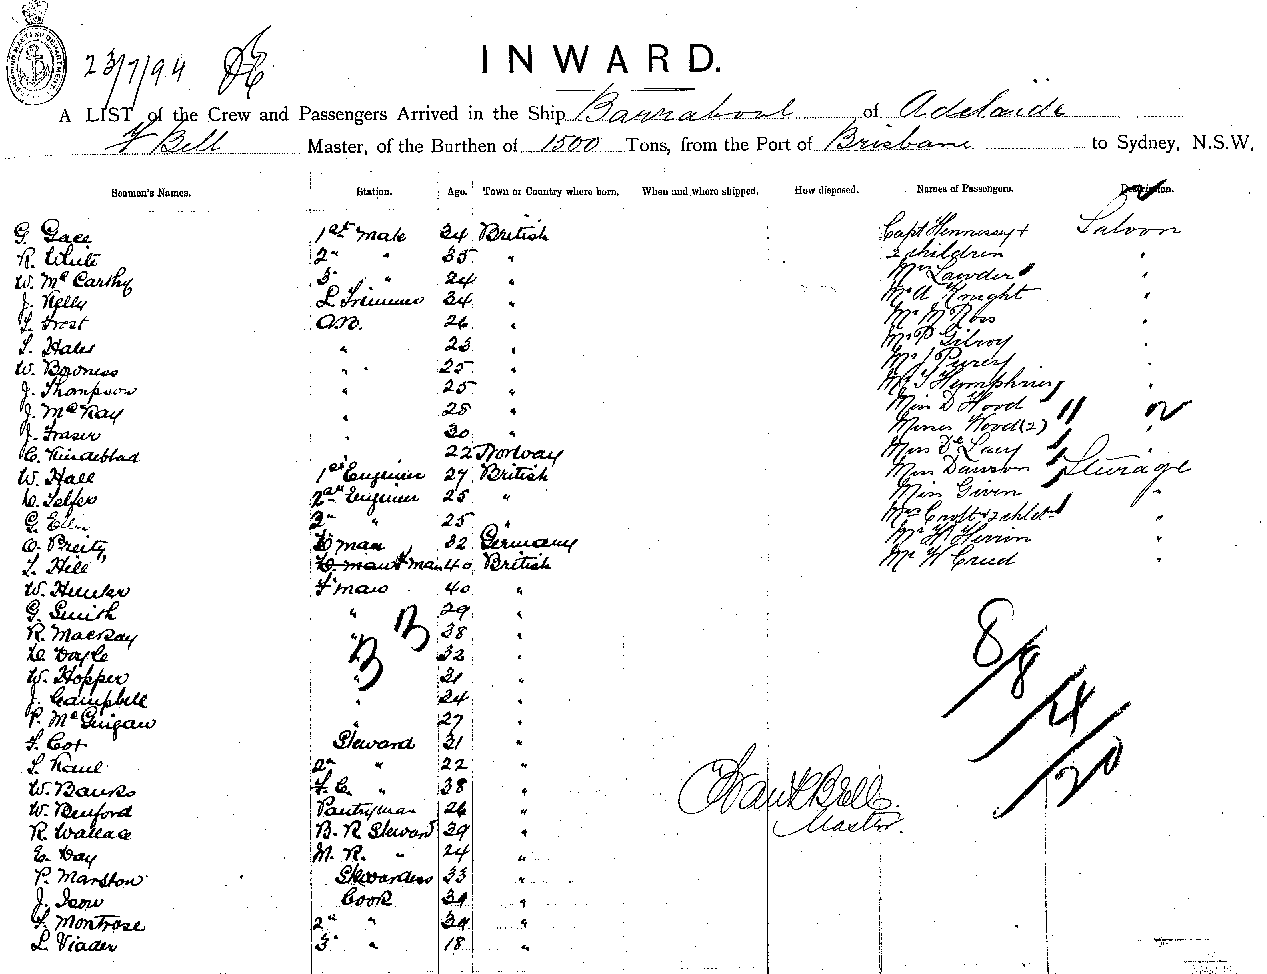 23/7/94
INWARD.
A LIST of the Crew and Passengers Arrived in the Ship Barrabool of Adelaide
F Bell Master, of the Burthen of 1500 Tons, from the Port of Brisbane to Sydney, N.S.W.
Seamen's Names. Station. Age. Town or Country where born. When and where shipped. How disposed. Names of Passengers. Description.
G. 1st Mate 34 British Capt Hennessy + Saloon
R. White 2" " 35 " 2 children "
W. McCarthy 3" " 24 " Mrs Lawder "
J. Kelly L. Trimmer 34 " Mr A Knight "
L. Frost A.B. 26 " Mr M Ross "
L. Hales " 23 " Mr P Gilroy "
W. Bowness " 25 " Mr J "
J. Thompson " 25 " Mr T Humphries "
J. McKay " 28 " Miss D Hood
J. Fraser " 30 " Misses Wood (2) "
C. 22 Norway Miss De Lacy
W. Hall 1st Engineer 27 British Miss Dawson Steerage
Telfer 2nd Engineer 25 " Miss Given "
G. 3" " 25 " Mrs Croft + "
O. man 32 Germany Mr H Herron "
L. Hill F man 40 British Mr W "
W. Hunter F man 40 "
G. Smith " 29 "
R. MacKay " 38 "
Doyle " 32 "
W. Hopper " 21 "
J. Campbell " 24 "
P. McGuigan " 27 "
Steward 31 "
L. 2" " 22 "
W. Banks F. C. " 38 "
W. Benford Pantryman 26 "
R. Wallace B. R Steward 29 "
E. Day M. R. " 24 "
P. Marston Stewardess 33 "
J. Cook 31 "
Montrose 2" " "
L. Viader 3" " 18 "
33
8/8/4/20
Bell
Master.